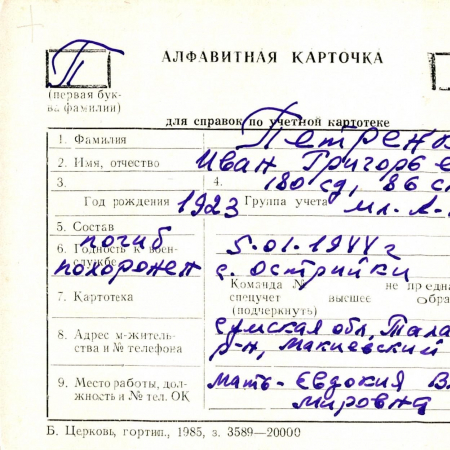 П
АЛФАВИТНАЯ КАРТОЧКА
(первая бук-
ва фамилии)
для справок по учетной картотеке
1. Фамилия Петренк
2. Имя, отчество Иван Григорьe
3. 4. 180 сд, 86 с
Год рождения 1923 Группа учета мл. л-
5. Состав погиб 5.01.1944 г
6. Годность к воен-
службе похоронен с. Острийки
Команда № не предна
7. Картотека спецучет высшее обра
(подчеркнуть)
8. Адрес м-житель-
ства и № телефона Сумская обл, Тала
р-н, Макиевский
9. Место работы, дол-
жность и № тел. ОК Мать - Евдокия В
мировна
Б. Церковь, гортип., 1985, з. 3589—20000